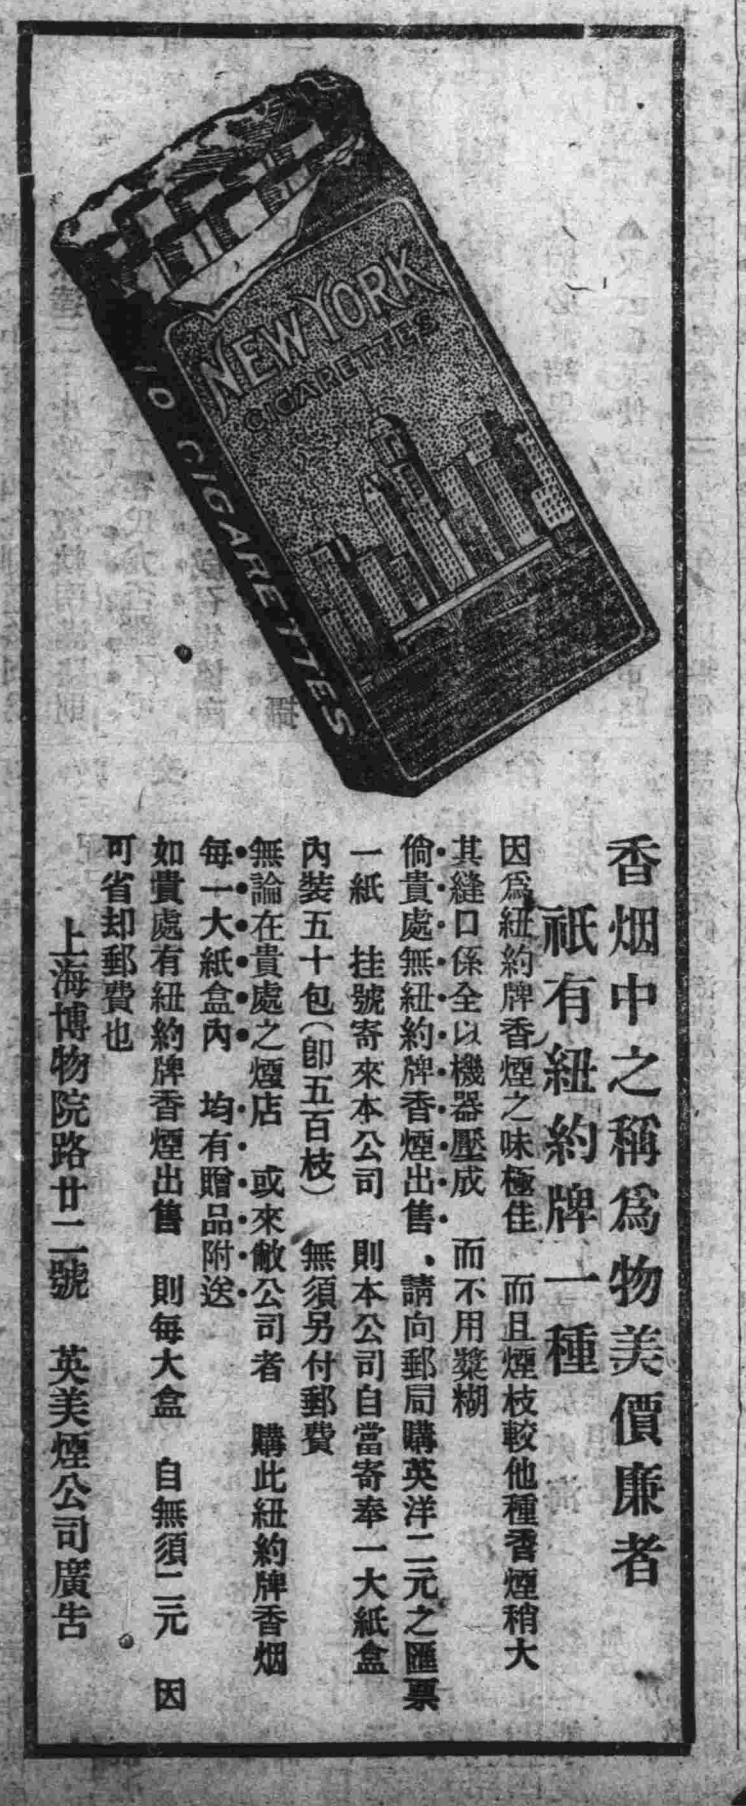 NEW YORK
CIGARETTES
10 CIGARETTES
香烟中之稱爲物美價廉者
祇有紐約牌一種
因爲紐約牌香煙之味極佳　而且煙枝較他種香煙稍大
其縫口係全以機器壓成　而不用漿糊
倘貴處無紐約牌香煙出售、請向郵局購英洋二元之匯票
一紙　挂號寄來本公司　則本公司自當寄奉一大紙盒
內裝五十包(卽五百枝)　無須另付郵費
無論在貴處之煙店　或來敝公司者　購此紐約牌香烟
每一大紙盒內　均有贈品附送
如貴處有紐約牌香煙出售　則每大盒　自無須二元　因
可省却郵費也
上海博物院路廿二號　英美煙公司廣告